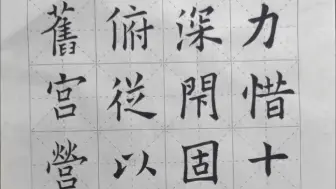 力惜十
深閇固
俯從以
舊宫營